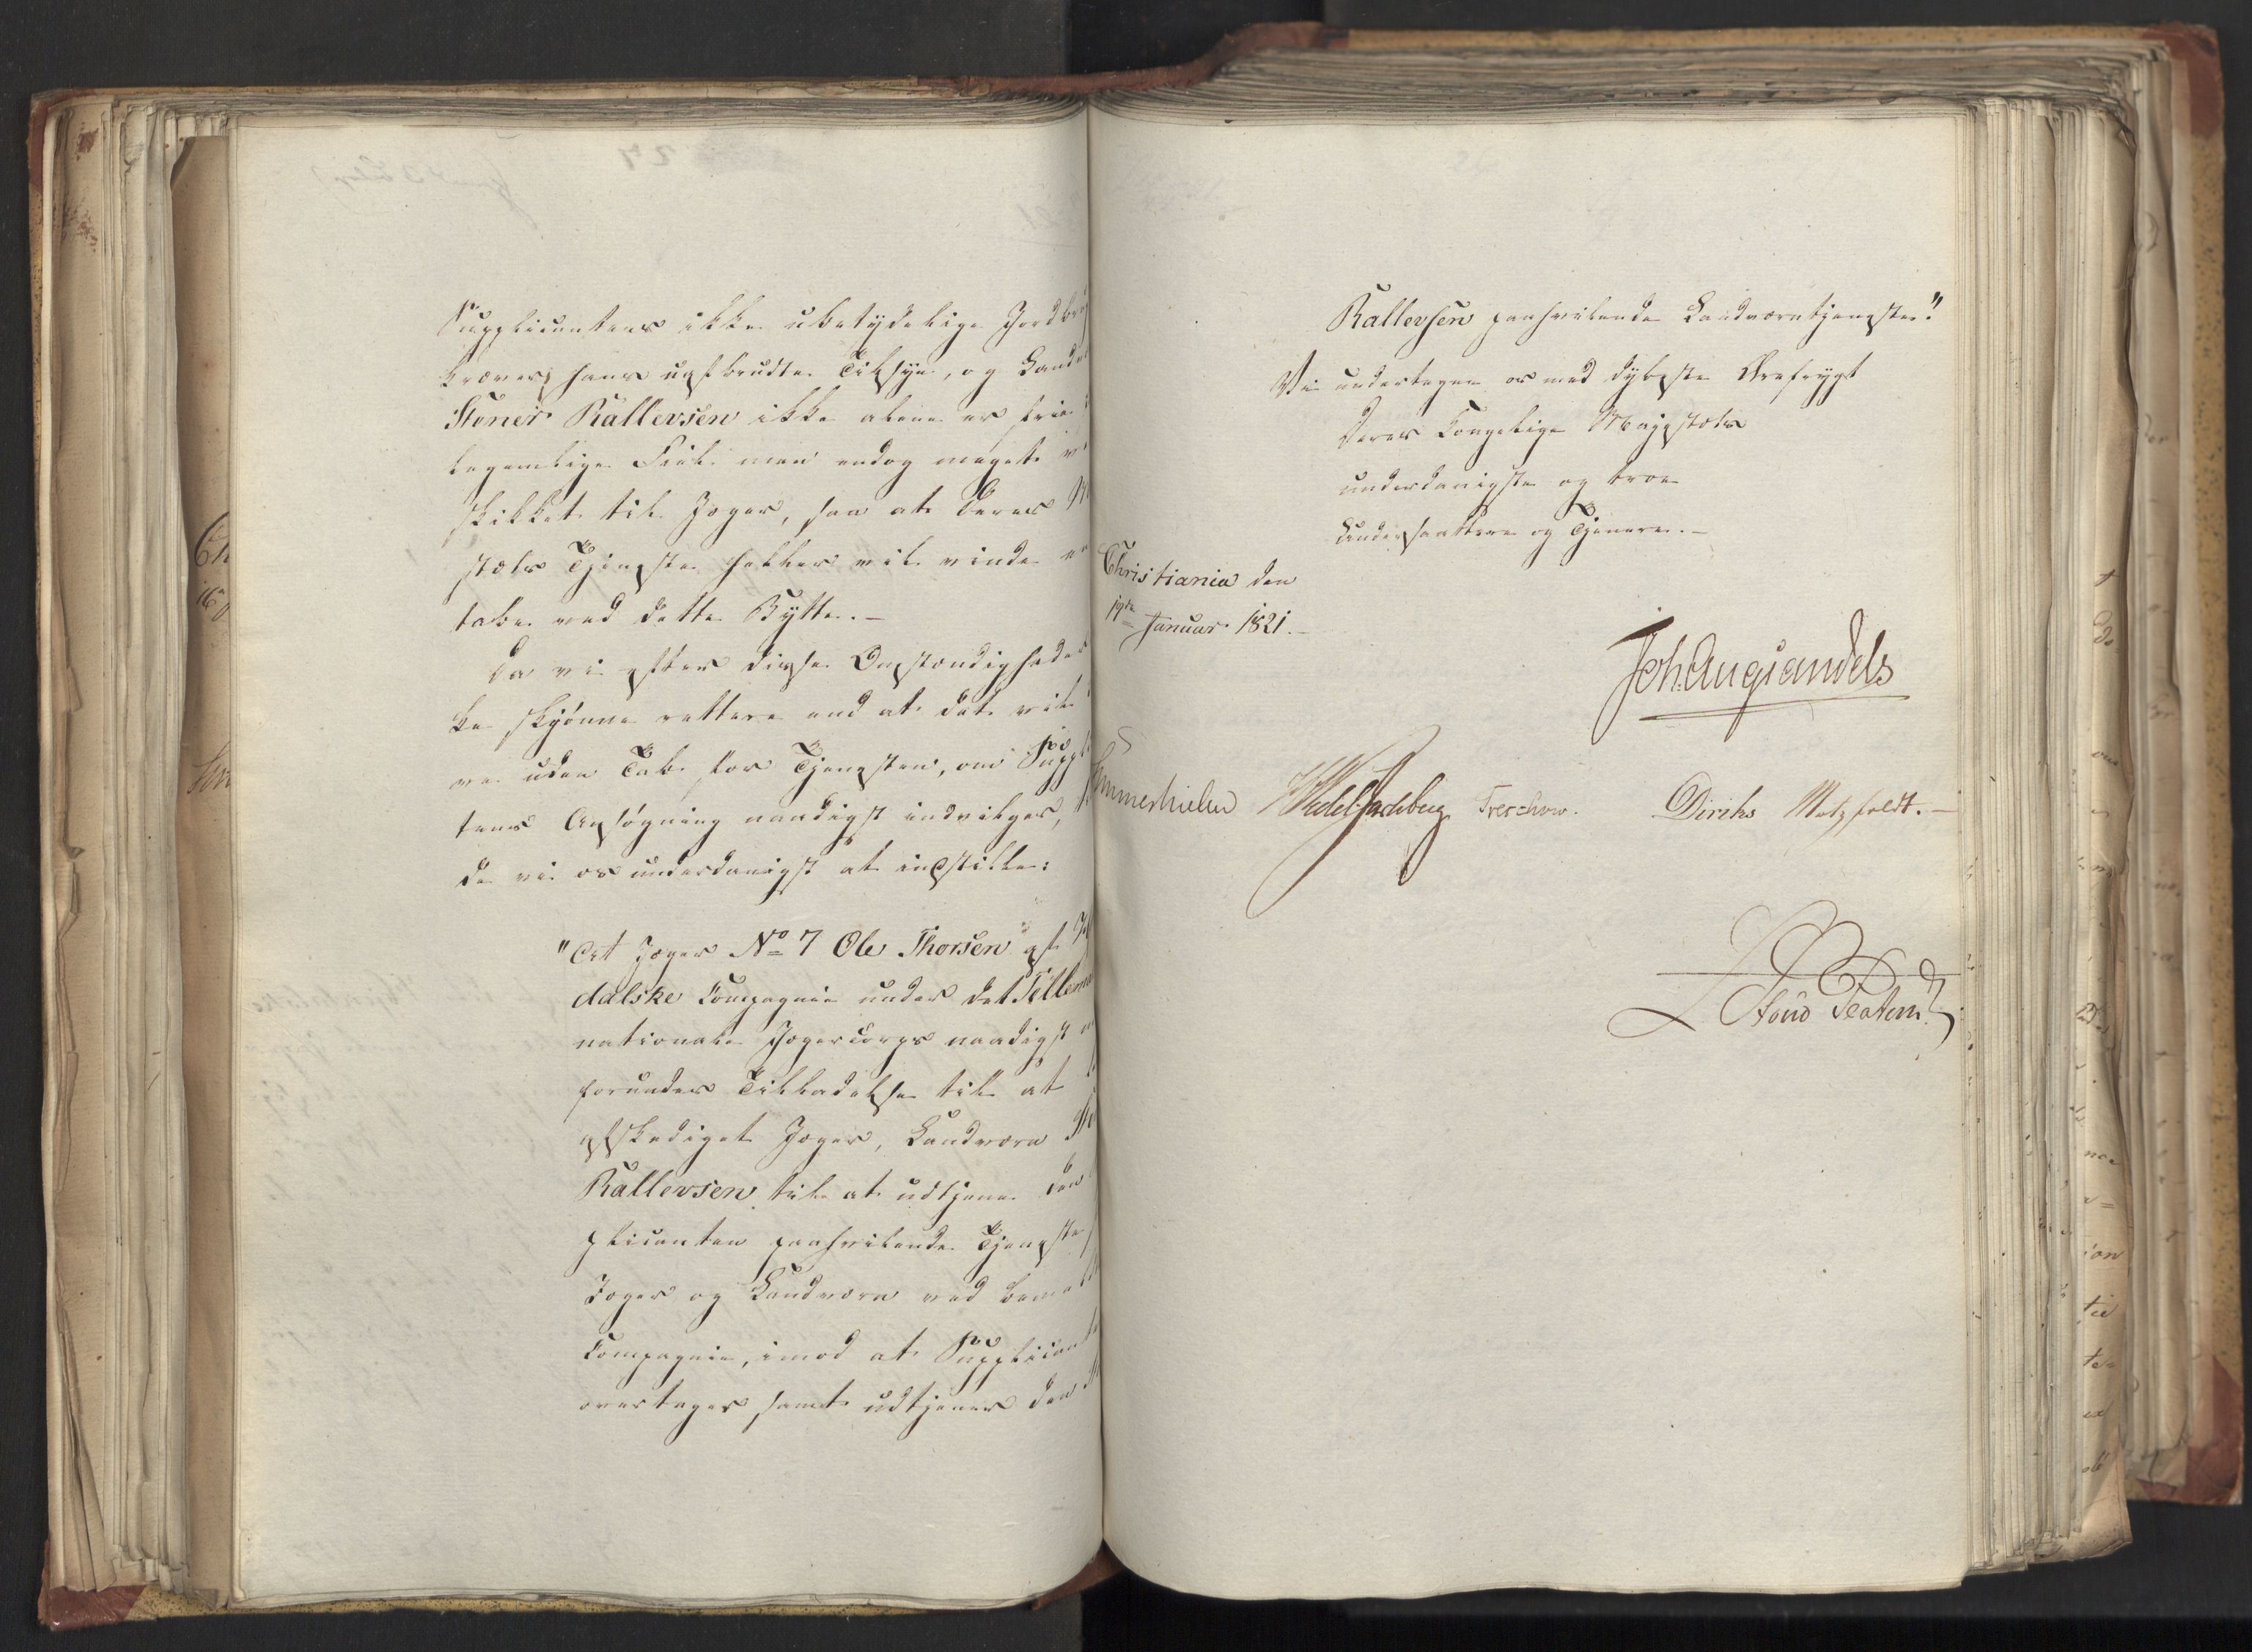 Supplicantens ikke ubetydelige Jordbru
kræver hans uafbrudte Tilsyn, og Landv
Stener Rallevsen ikke alene er frie
legemlige Feil men endog meget v
skikket til Jæger, saa at Deres M
stæts Tjeneste heller vil vinde
tabe ved dette Bytte.-
Da vi efter disse Omstændigheder
ke skjønne rettere end at det vil
re uden Tab for Tjenesten, om Suppl
tens Ansøgning naadigst indvilges,
de vi os underdanigst at indstille:
"At Jæger No 7 Ole Thorsen af
dalske Compagnie under det Tellem
nationale Jægercorps naadigst
forundes Tilladelse til at
afskediget Jæger, Landværn
Rallevsen til at udtjene den
plicanten paahvilende Tjeneste
Jæger og Landværn ved bem
Compagnie, imod at Supplicant
overtager samt udtjener den
Rallevsen paahvilende Landværntjeneste."
Vi undertegne os med dybeste Ærefrygt
Deres Kongelige Majestæts
underdanigste og troe
Undersaattere og Tjenere.-
Christiania den
19de Januar 1821.-
Joh. Aug. Sandels
Sommerhielm HWedelJarlsberg Treschow. Diriks Motzfeldt.-